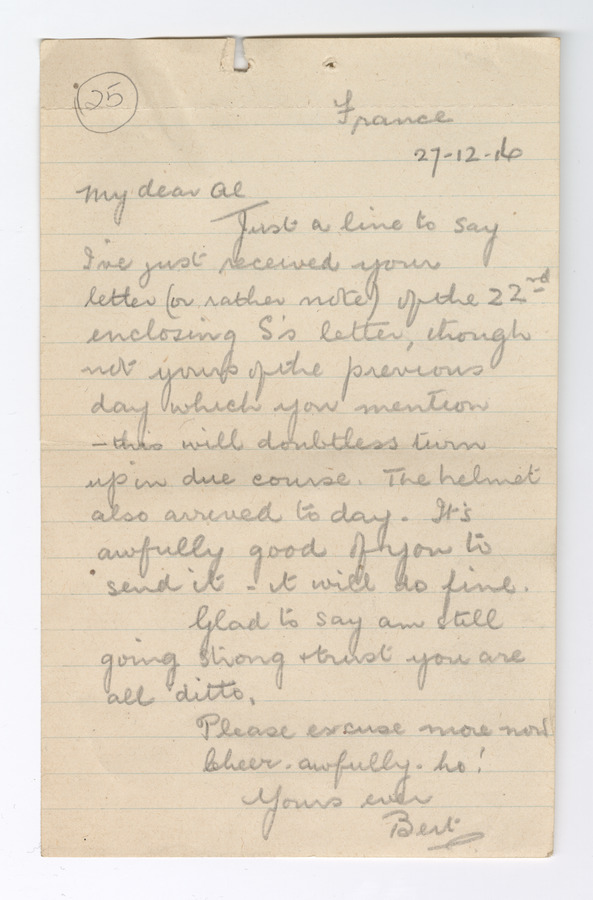 25
France
27-12-16
My dear Al
Just a line to say
I've just received your
letter (or rather note) of the 22nd
enclosing S's letter, though
not yours of the previous
day which you mention
- this will doubtless turn
up in due course. The helmet
also arrived to day. It's
awfully good of you to
send it - it will do fine.
Glad to say am still
going strong & trust you are
all ditto.
Please excuse more now
Cheer-awfully-ho!
Yours ever
Bert